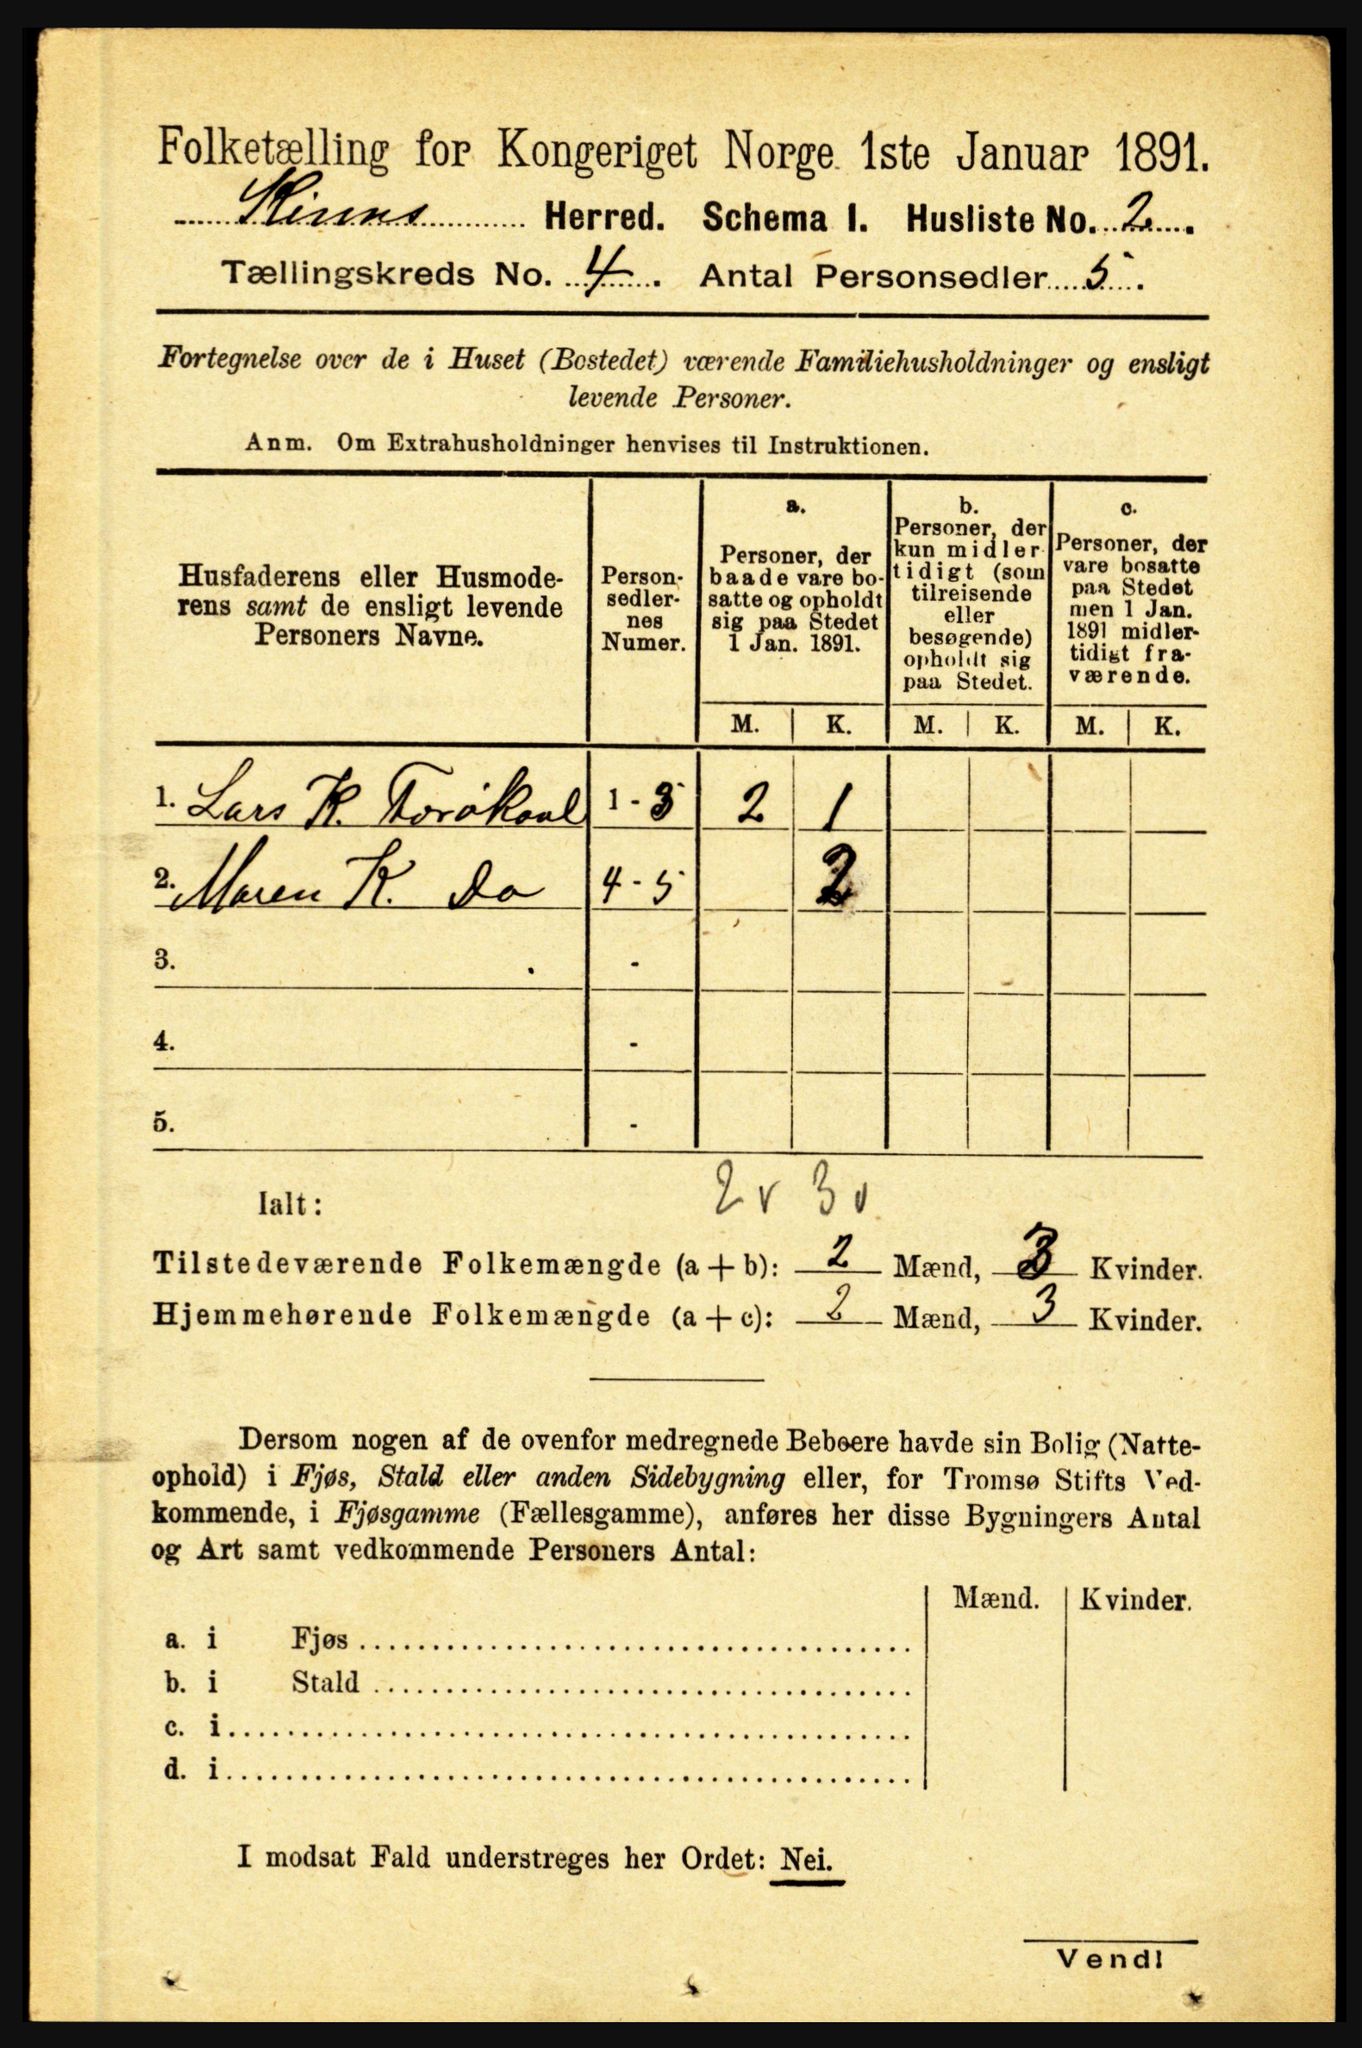 Folketælling for Kongeriget Norge 1ste Januar 1891.
Kinns Herred. Schema I. Husliste No. 2.
Tællingskreds No. 4. Antal Personsedler 5.
Fortegnelse over de i Huset (Bostedet) værende Familiehusholdninger og ensligt
levende Personer.
Anm. Om Extrahusholdninger henvises til Instruktionen.
Husfaderens eller Husmode-
rens samt de ensligt levende
Personers Navne.
Person-
sedler-
nes
Numer.
a.
Personer, der
baade vare bo-
satte og opholdt
sig paa Stedet
1 Jan. 1891.
b.
Personer, der
kun midler
tidigt (som
tilreisende
eller
besøgende)
opholdt sig
paa Stedet.
c.
Personer, der
vare bosatte
paa Stedet
men 1 Jan.
1891 midler-
tidigt fra-
værende.
M. K. M. K. M. K.
1. Lars K. 1 - 3 2 1
2. Maren K. Do 4 - 5 2
3. -
4. -
5. -
Ialt: 2 v 3 v
Tilstedeværende Folkemængde (a + b): 2 Mænd, 3 Kvinder.
Hjemmehørende Folkemængde (a + c): 2 Mænd, 3 Kvinder.
Dersom nogen af de ovenfor medregnede Beboere havde sin Bolig (Natte-
ophold) i Fjøs, Stald eller anden Sidebygning eller, for Tromsø Stifts Ved-
kommende, i Fjøsgamme (Fællesgamme), anføres her disse Bygningers Antal
og Art samt vedkommende Personers Antal:
Mænd. Kvinder.
a. i Fjøs
b. i Stald
c. i
d. i
I modsat Fald understreges her Ordet: Nei.
Vend!